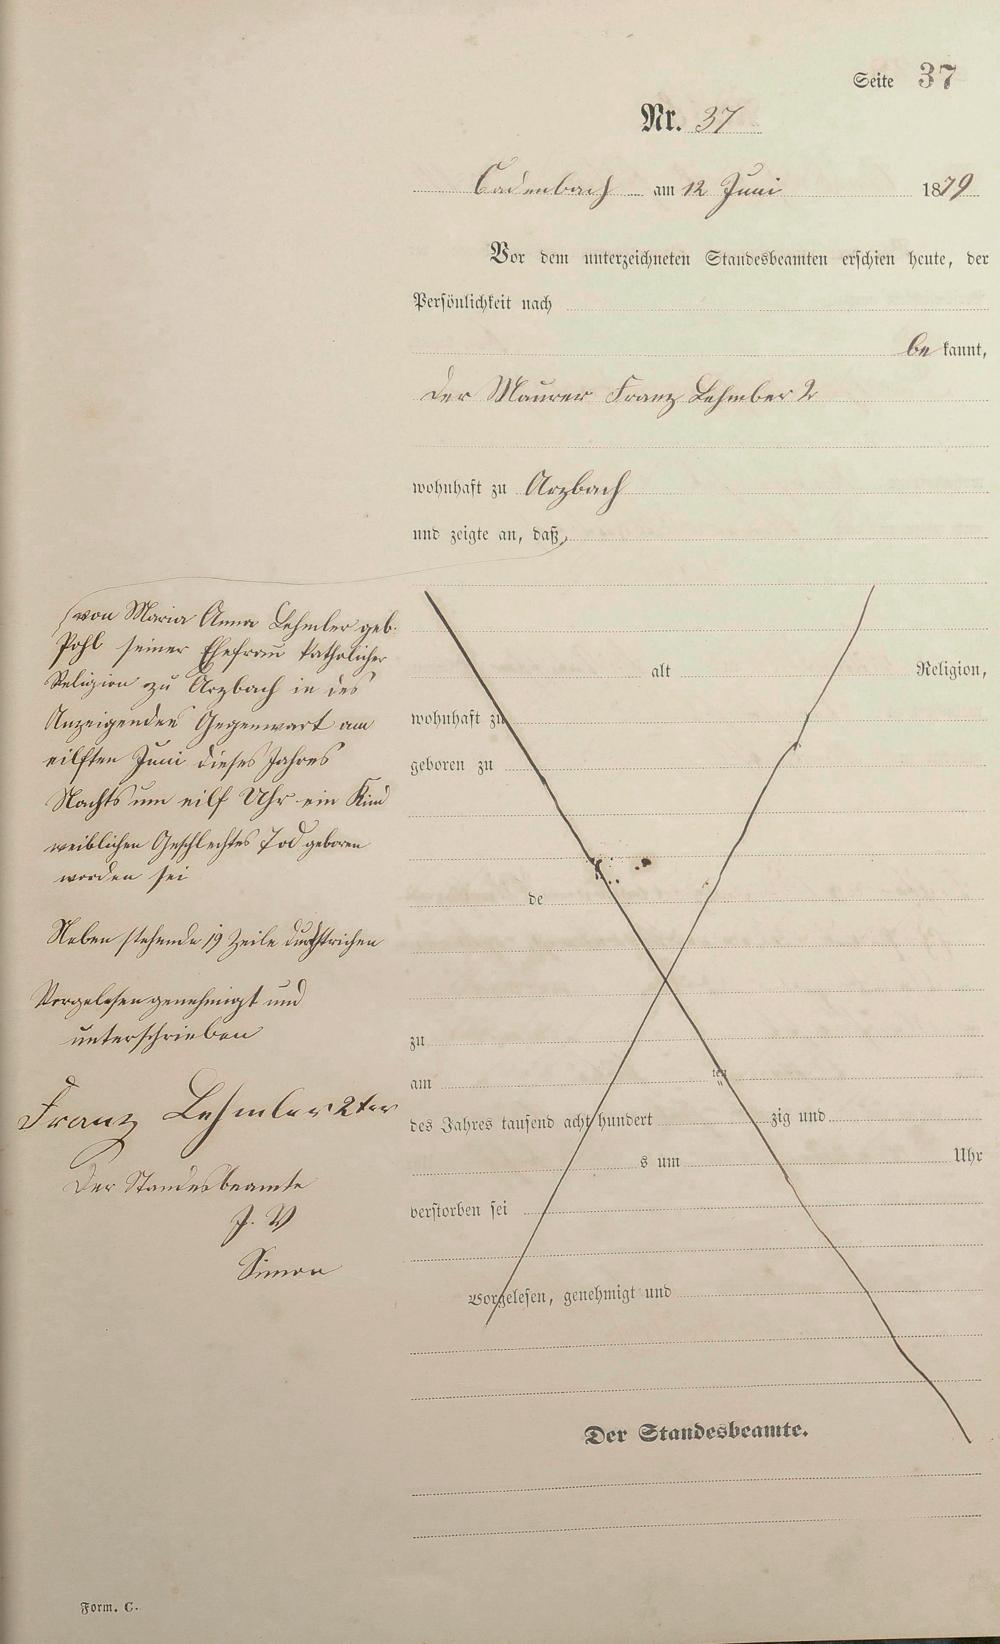 Seite 37
Nr. 37
Cadenbach am 12 Juni 1879
Vor dem unterzeichneten Standesbeamten erschien heute, der
Persönlichkeit nach
be kannt,
der Maurer Franz Lehmler 2r
wohnhaft zu Arzbach
und zeigte an, daß,
von Maria Anna Lehmler geb.
Pohl seiner Ehefrau katholischer
Religion zu Arzbach in des
Anzeigenden Gegenwart am
eilften Juni dieses Jahres
Nachts um eilf Uhr ein Kind
weiblichen Geschlechtes Tod geboren
worden sei
Neben stehende 19 Zeile durchstrichen
Vorgelesen genehmigt und
unterschrieben
Franz Lehmler 2ter
Der Standesbeamte
J. V
Simon
alt Religion,
wohnhaft zu
geboren zu
de
zu
am ten
des Jahres tausend acht hundert zig und
s um Uhr
verstorben sei
Vorgelesen, genehmigt und
Der Standesbeamte.
Form. C.